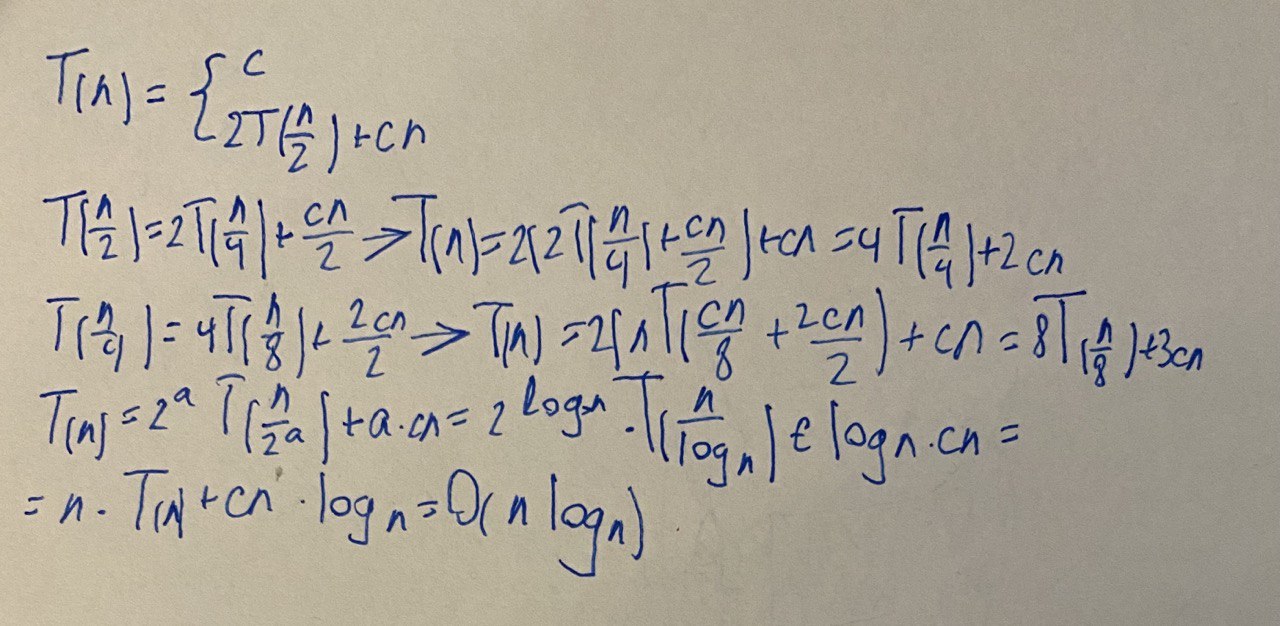 T(n) = { c
2T(n/2) + cn
T(n/2) = 2T(n/4) + cn/2 → T(n) = 2(2T(n/4) + cn/2) + cn = 4T(n/4) + 2cn
T(n/4) = 4T(n/8) + 2cn/2 → T(n) = 2(nT(cn/8 + 2cn/2) + cn = 8T(n/8) + 3cn
T(n) = 2^a T(n/2^a) + a·cn = 2^log n · T(n/log n) € log n · cn =
= n · T(n) + cn · log n = O(n log n)